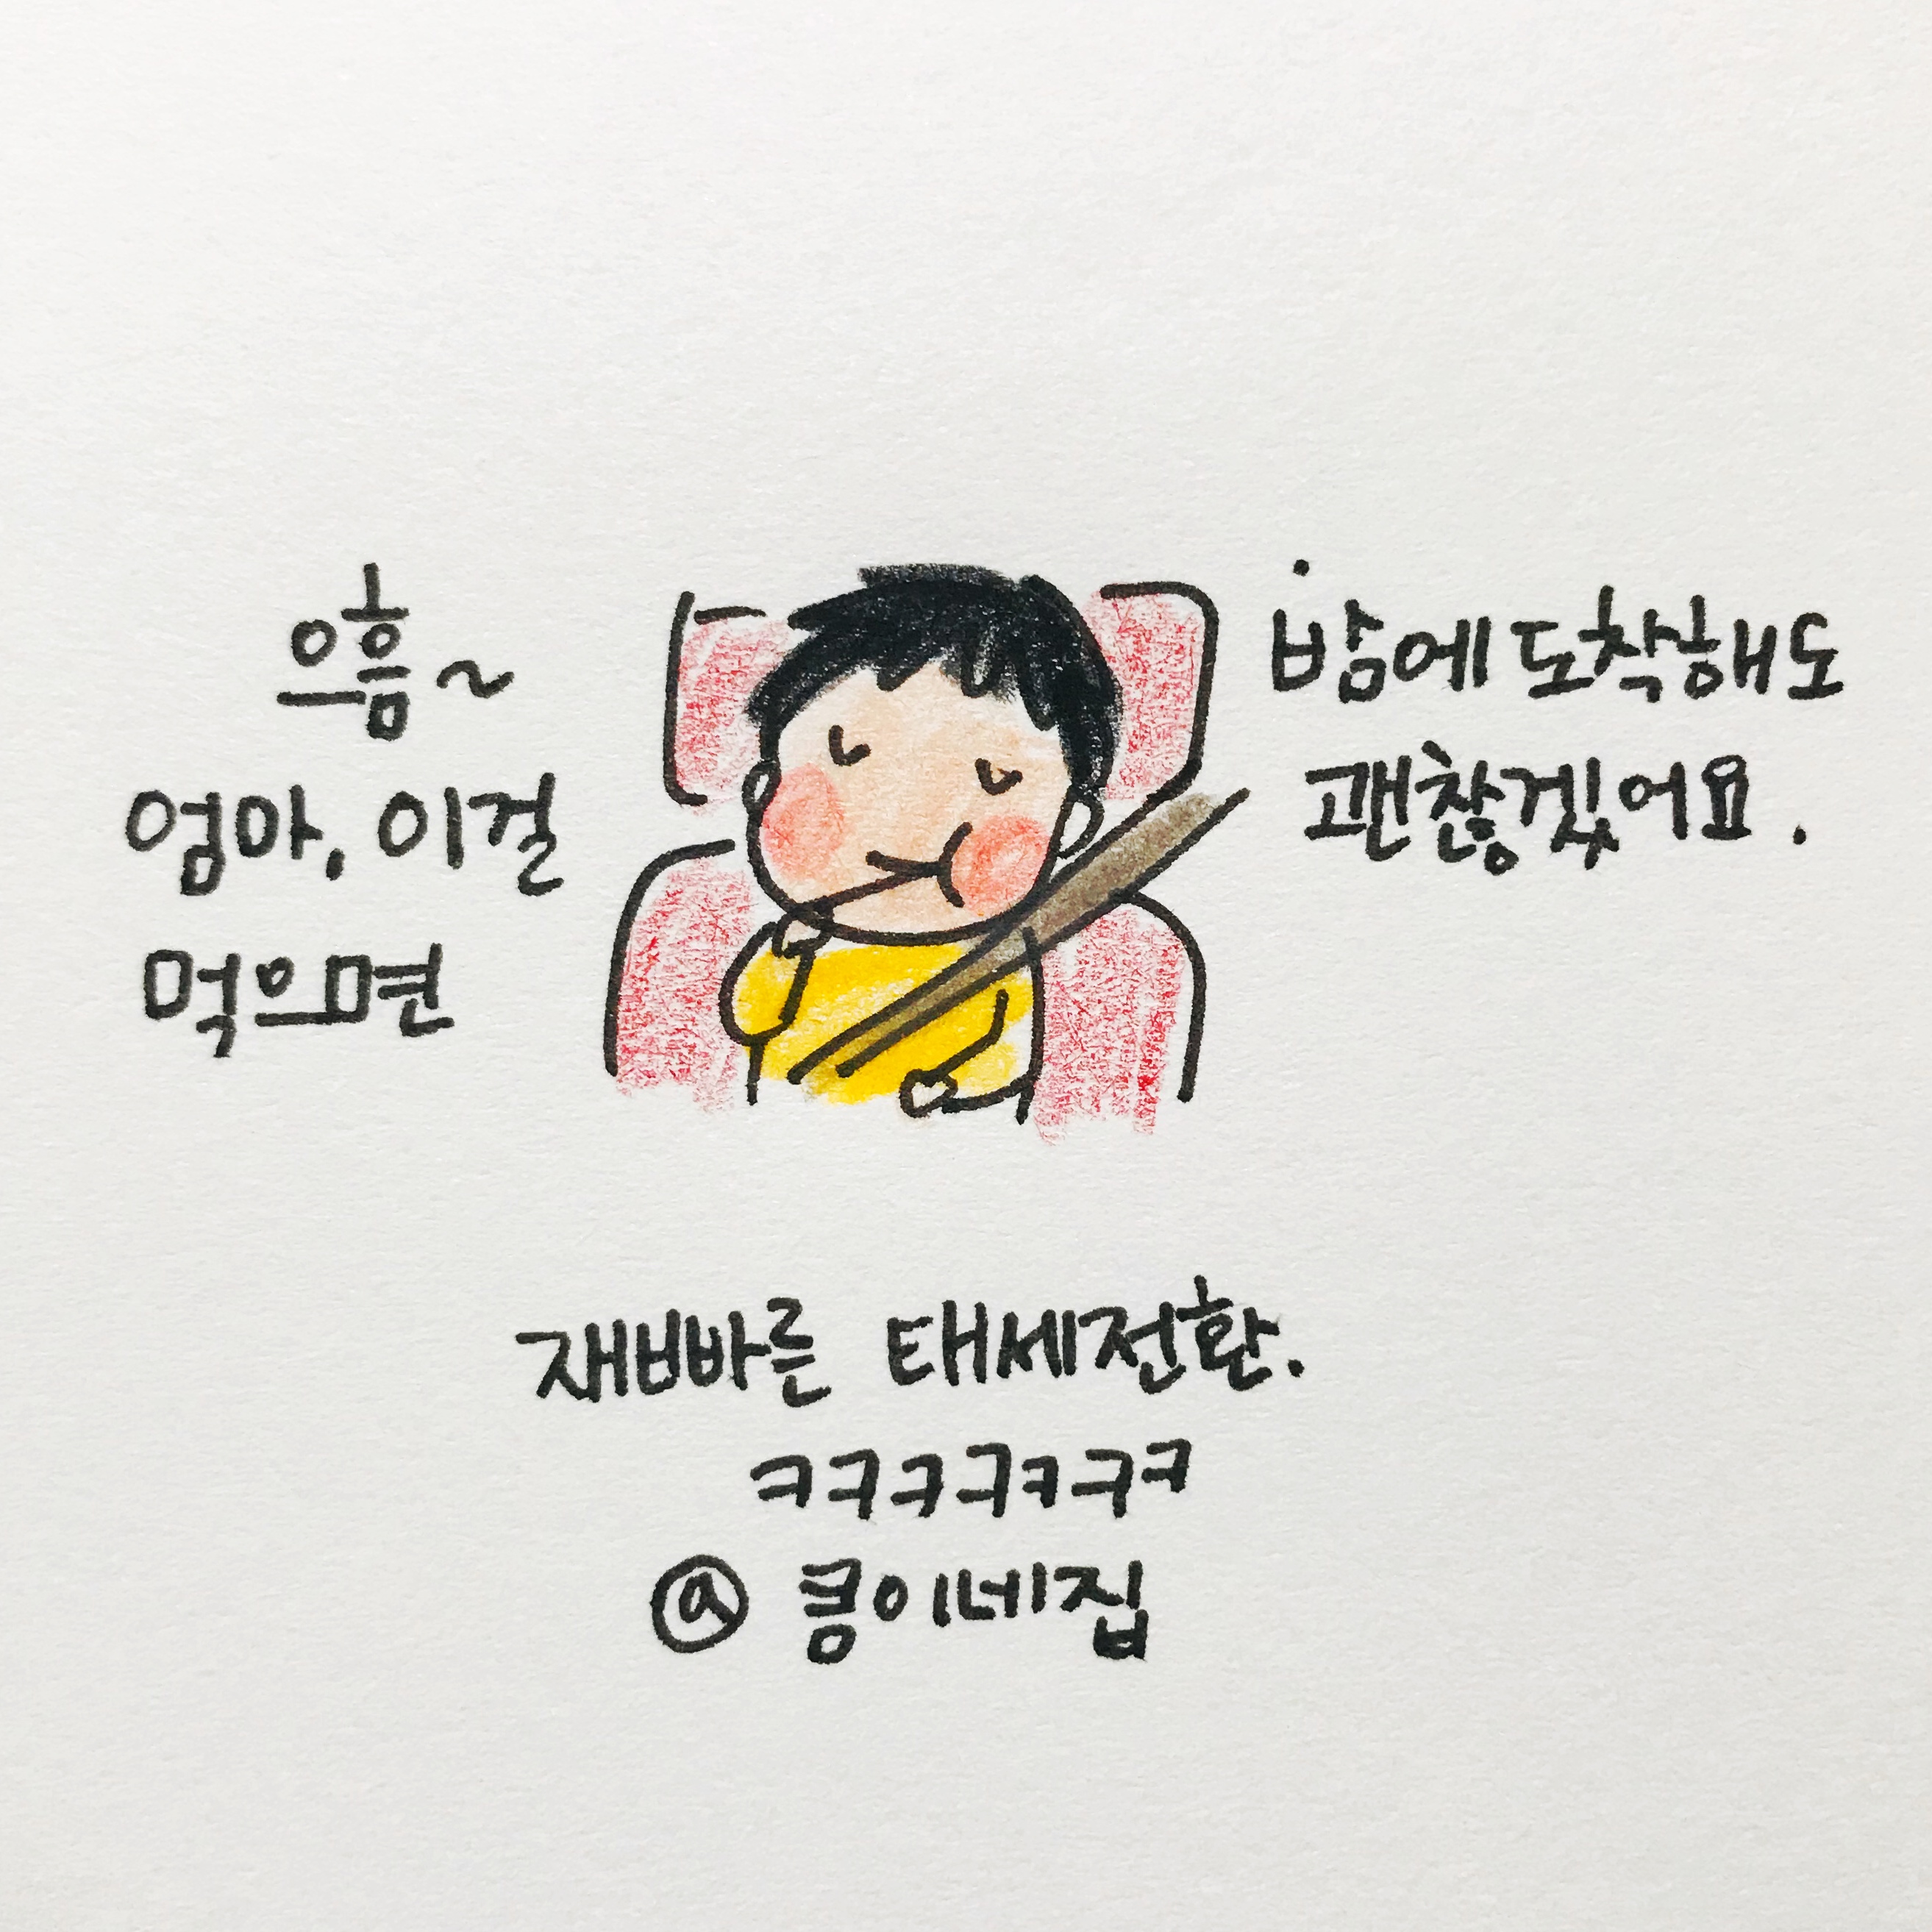 으흠~
엄마, 이걸
먹으면
밤에 도착해도
괜찮겠어요.
재빠른 태세전환.
ㅋㅋㅋㅋㅋㅋㅋ
@ 콩이네집